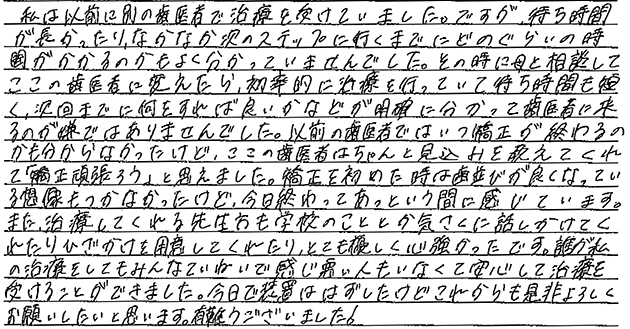 私は以前に別の歯医者で治療を受けていました。ですが、待ち時間
が長かったり、なかなか次のステップに行くまでにどのぐらいの時
間がかかるのかもよく分かっていませんでした。その時に母と相談して
ここの歯医者に変えたら、効率的に治療を行っていて待ち時間も短
く、次回までに何をすれば良いかなどが明確に分かって歯医者に来
るのが嫌ではありませんでした。以前の歯医者ではいつ矯正が終わるの
かも分からなかったけど、ここの歯医者はちゃんと見込みを教えてくれ
て「矯正頑張ろう」と思えました。矯正を初めた時は歯並びが良くなってい
る想像もつかなかったけど、今日終わってあっという間に感じています。
また、治療してくれる先生方も学校のこととか気さくに話しかけてく
れたりひざかけを用意してくれたり、とても優しく心強かったです。誰が私
の治療をしてもみんなていねいで感じ悪い人もいなくて安心して治療を
受けることができました。今日で装置ははずしたけどこれからも是非よろしく
お願いしたいと思います。有難うございました!